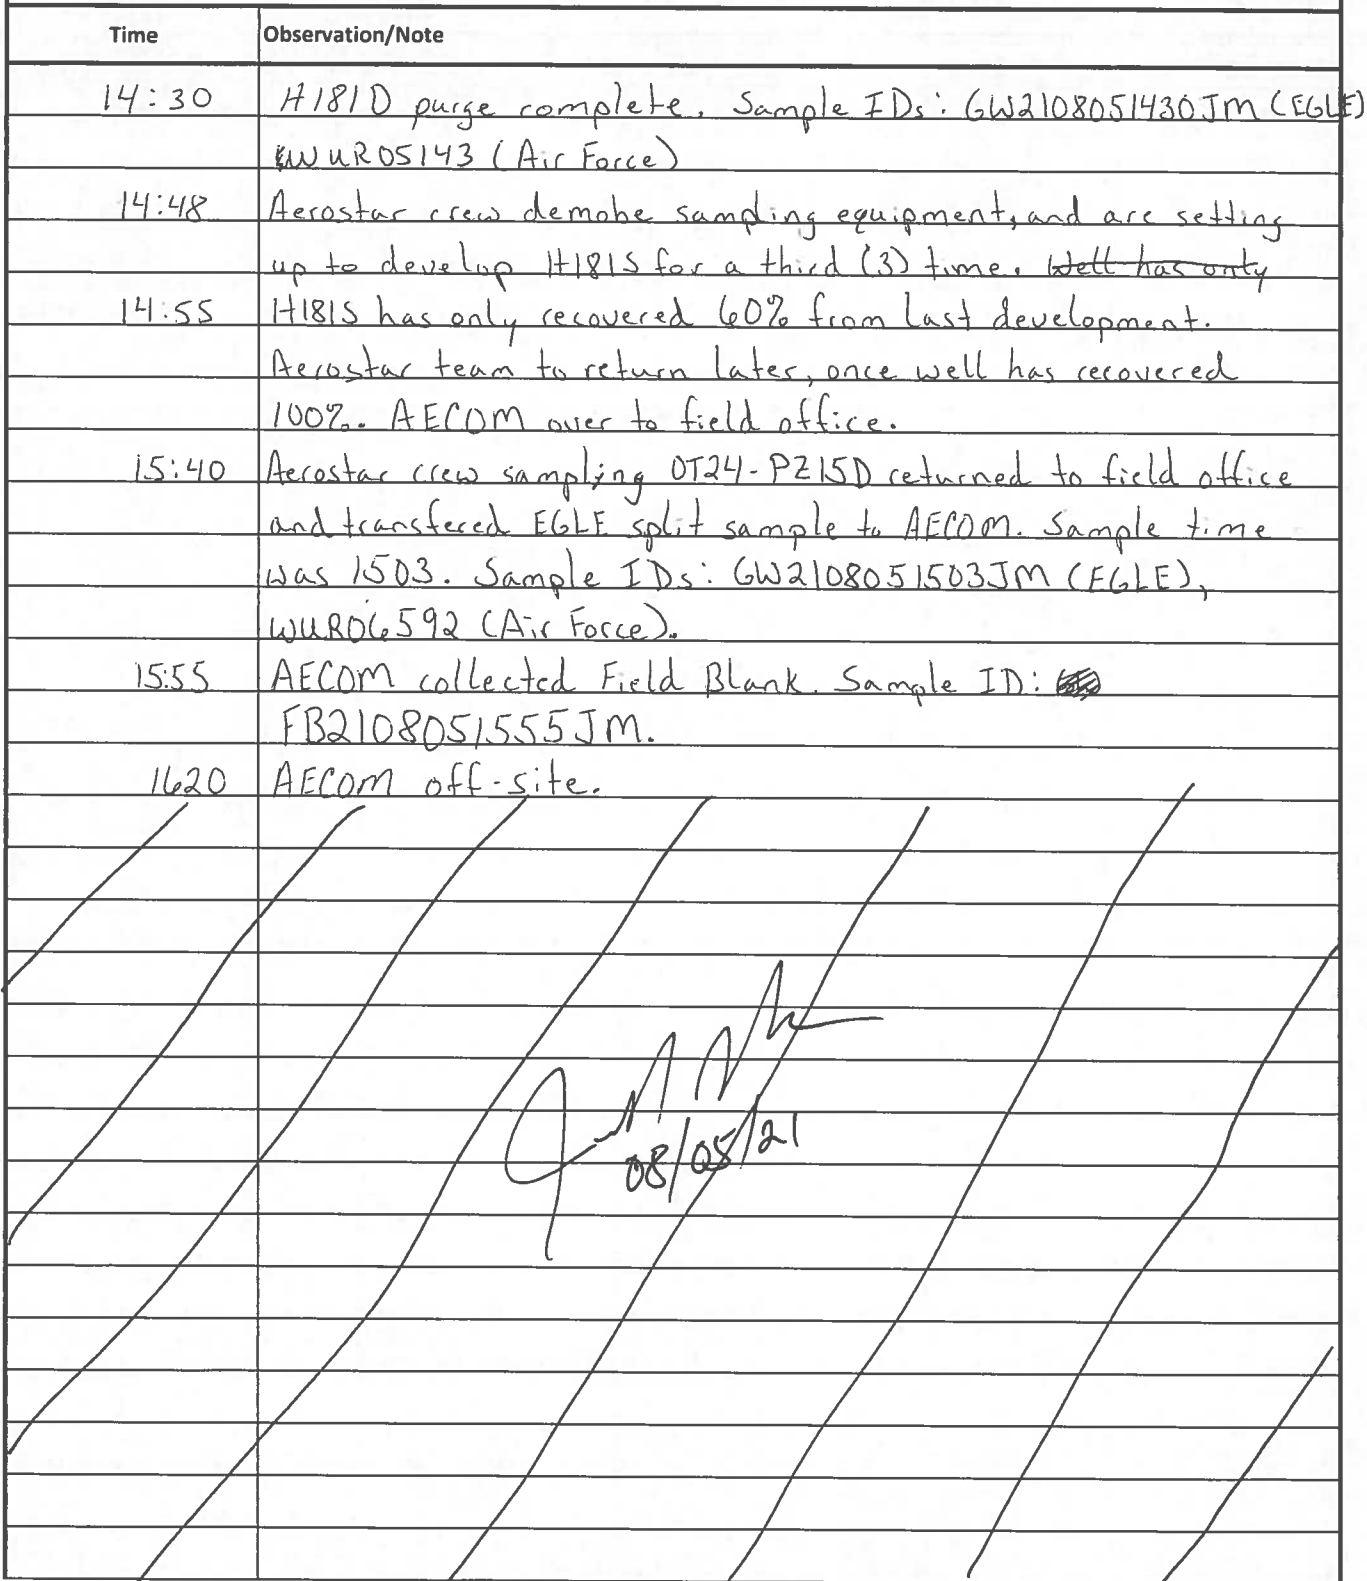 Time Observation/Note
14:30 H181D purge complete. Sample IDs: GW2108051430JM (EGLE)
WUR05143 (Air Force)
14:48 Aerostar crew demobe sampling equipment, and are setting
up to develop H181S for a third (3) time. Well has only
14:55 H181S has only recovered 60% from last development.
Aerostar team to return later, once well has recovered
100%. AECOM over to field office.
15:40 Aerostar crew sampling OT24-PZ15D returned to field office
and transfered EGLE split sample to AECOM. Sample time
was 1503. Sample IDs: GW2108051503JM (EGLE),
WUR06592 (Air Force).
15:55 AECOM collected Field Blank. Sample ID:
FB2108051555JM.
1620 AECOM off-site.
08/05/21